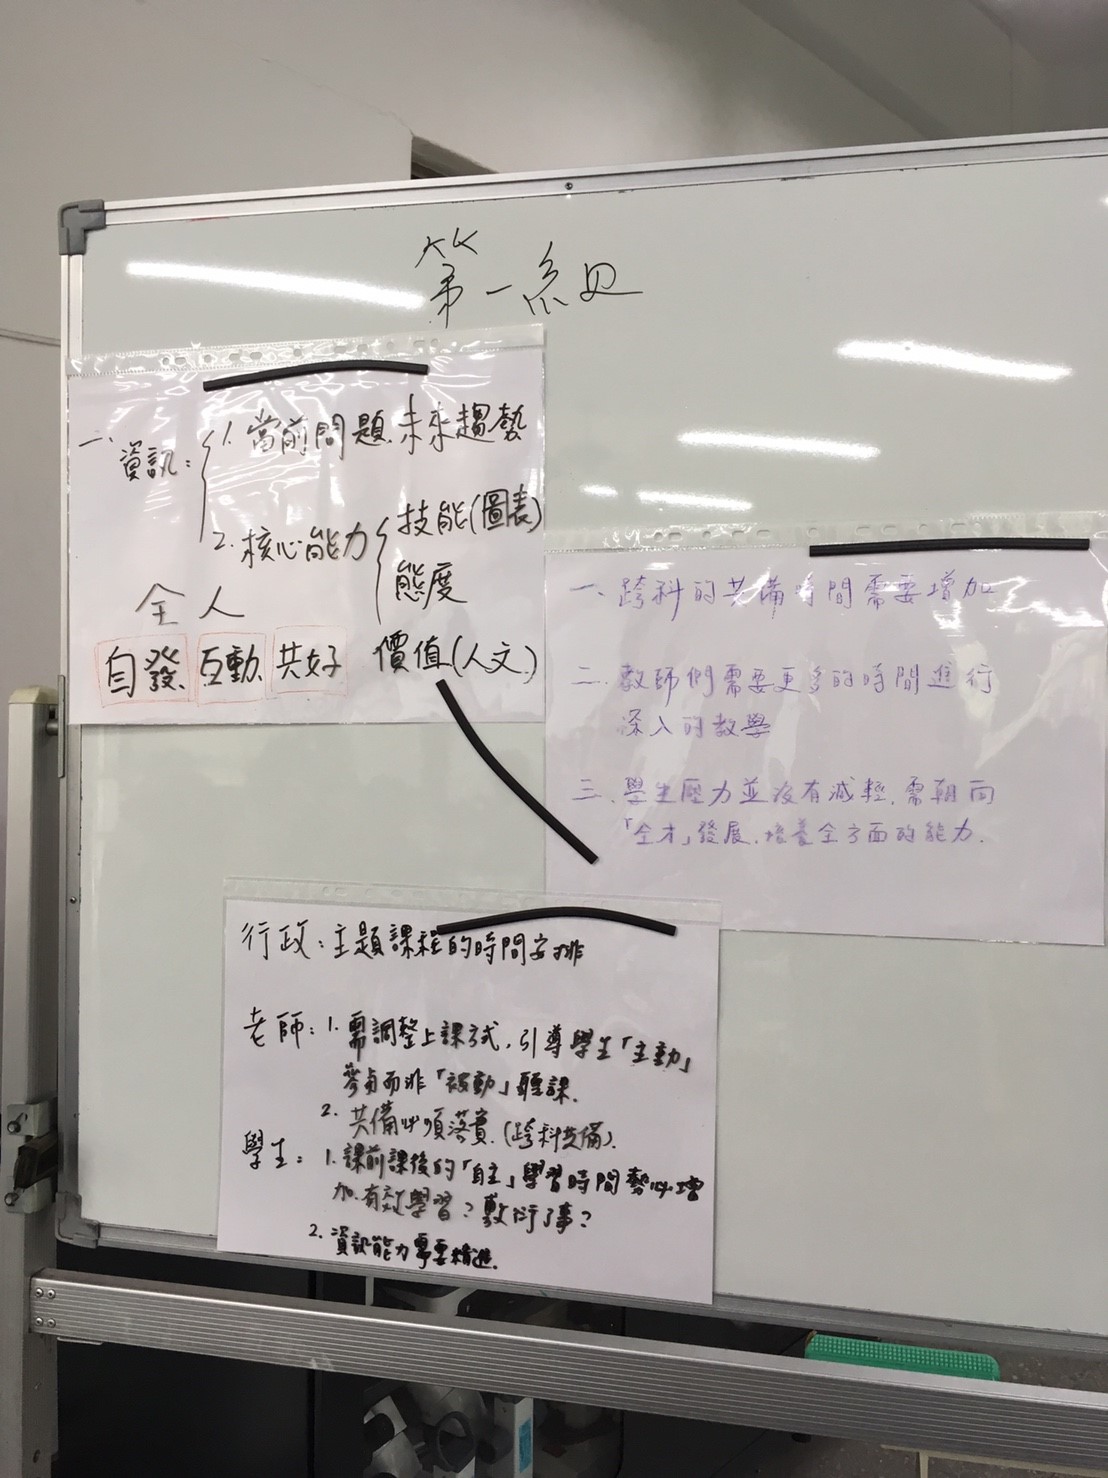 第一組
一、資訊：1. 當前問題、未來趨勢
2. 核心能力 技能(圖表)
態度
價值(人文)
全人
自發、互動、共好
一、跨科的共備時間需要增加
二、教師們需要更多的時間進行
深入的教學
三、學生壓力並沒有減輕，需朝向
「全才」發展，培養全方面的能力.
行政：主題課程的時間安排
老師：1. 需調整上課方式，引導學生「主動」
參與而非「被動」聽課.
2. 共備必須落實.(跨科共備).
學生：1. 課前課後的「自主」學習時間勢必增
加.有效學習？敷衍了事？
2. 資訊能力需要精進.